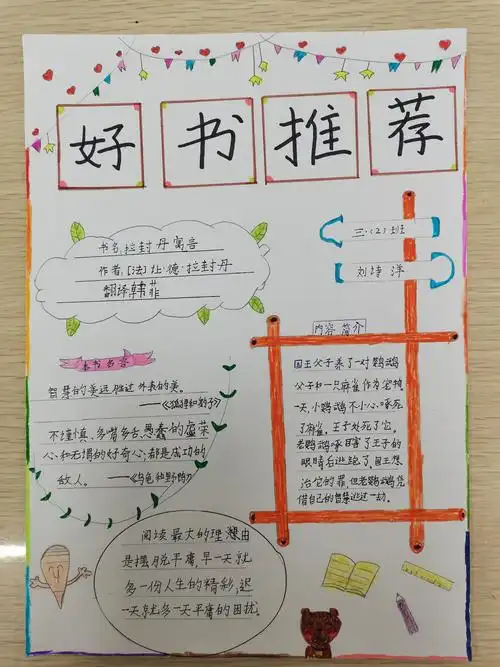 好书推荐
书名:拉封丹寓言
作者:[法]让·德·拉封丹
翻译:韩菲
三·(2)班
刘诗洋
本书名言
智慧的美远胜过外表的美。
——《狐狸和豹子》
不谨慎、多嘴多舌、愚蠢的虚荣
心和无惧的好奇心都是成功的
敌人。——《乌龟和野鸭》
内容简介
国王父子养了一对鹦鹉
父子和一只麻雀作为宠物
一天,小鹦鹉不小心啄死
了麻雀,王子处死了它。
老鹦鹉啄目害了王子的
眼睛后逃跑了,国王想
治它的罪,但老鹦鹉凭
借自己的智慧逃过一劫。
阅读最大的理想由
是摆脱平庸,早一天就
多一份人生的精彩,迟
一天就多一天平庸的困扰。